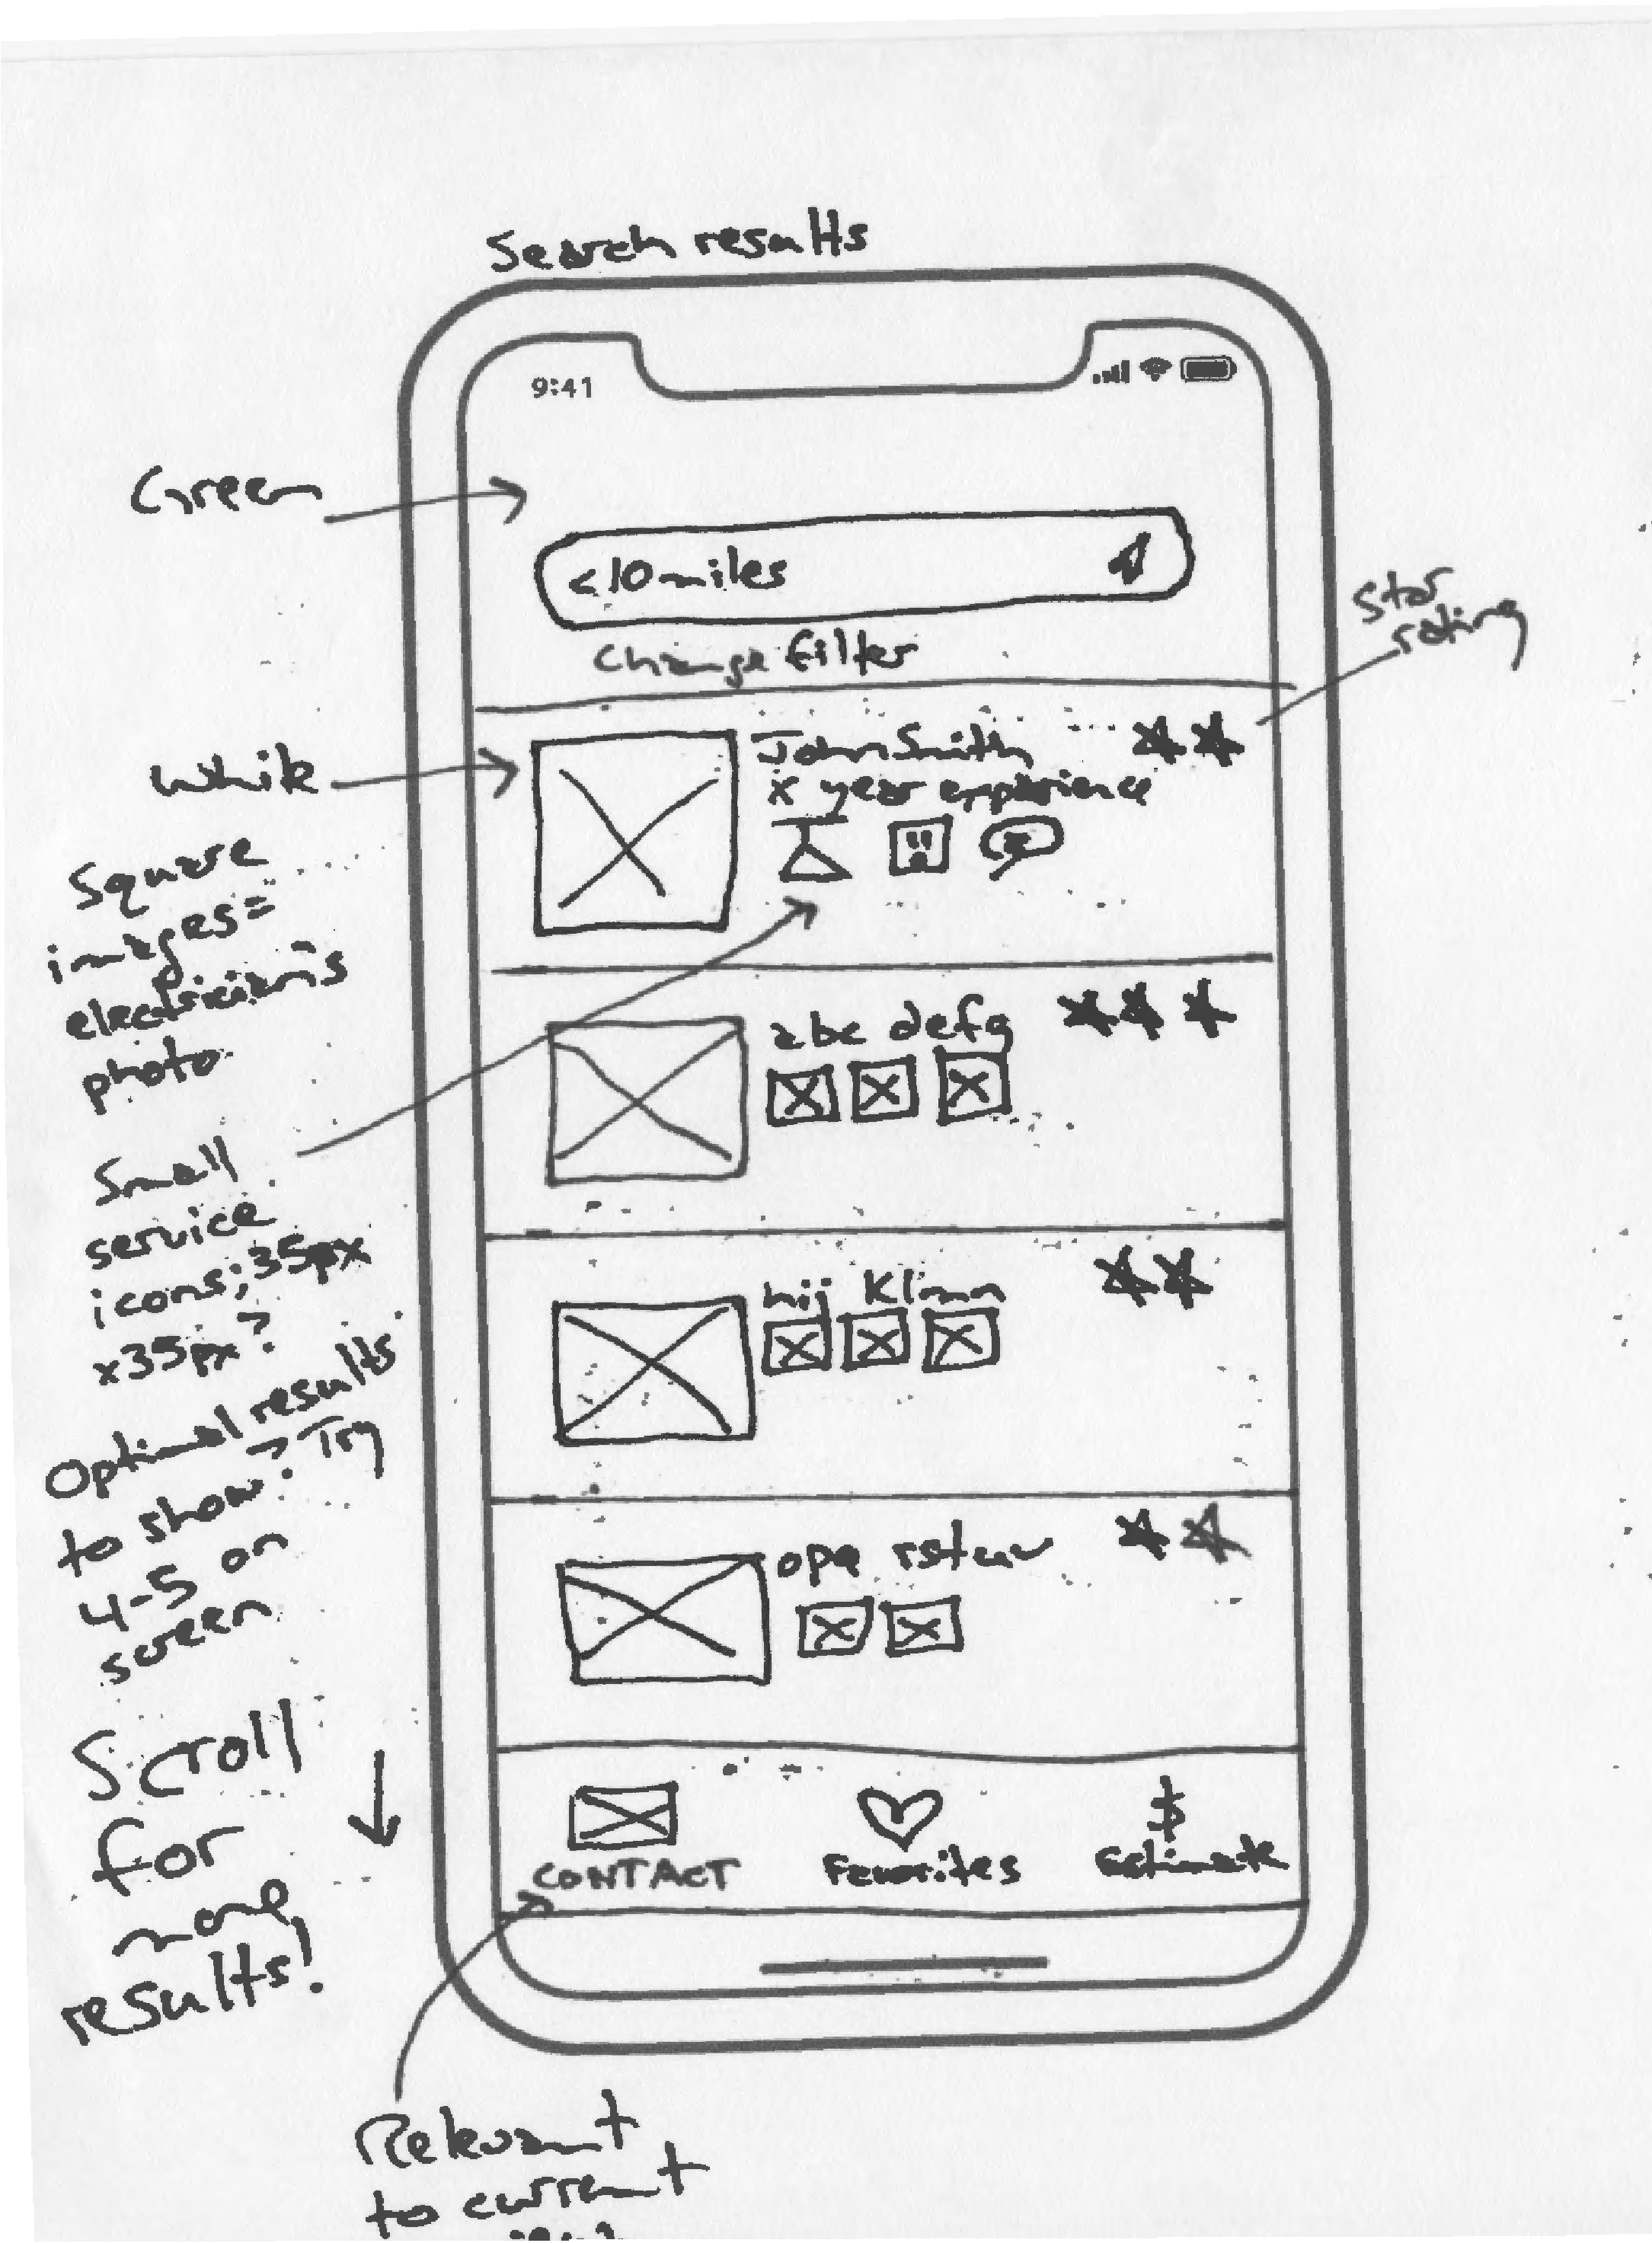 Search results
9:41
Green
<10 miles
Change filter
Star
rating
White
John Smith
x year experience
Square
images=
electrician's
photo
abc defg
Small
service
icons; 35px
x35px?
hij Klmn
Optimal results
to show? Try
4-5 on
screen
opq rstuv
Scroll
for
more
results!
CONTACT
Favorites
$
Estimate
Relevant
to current